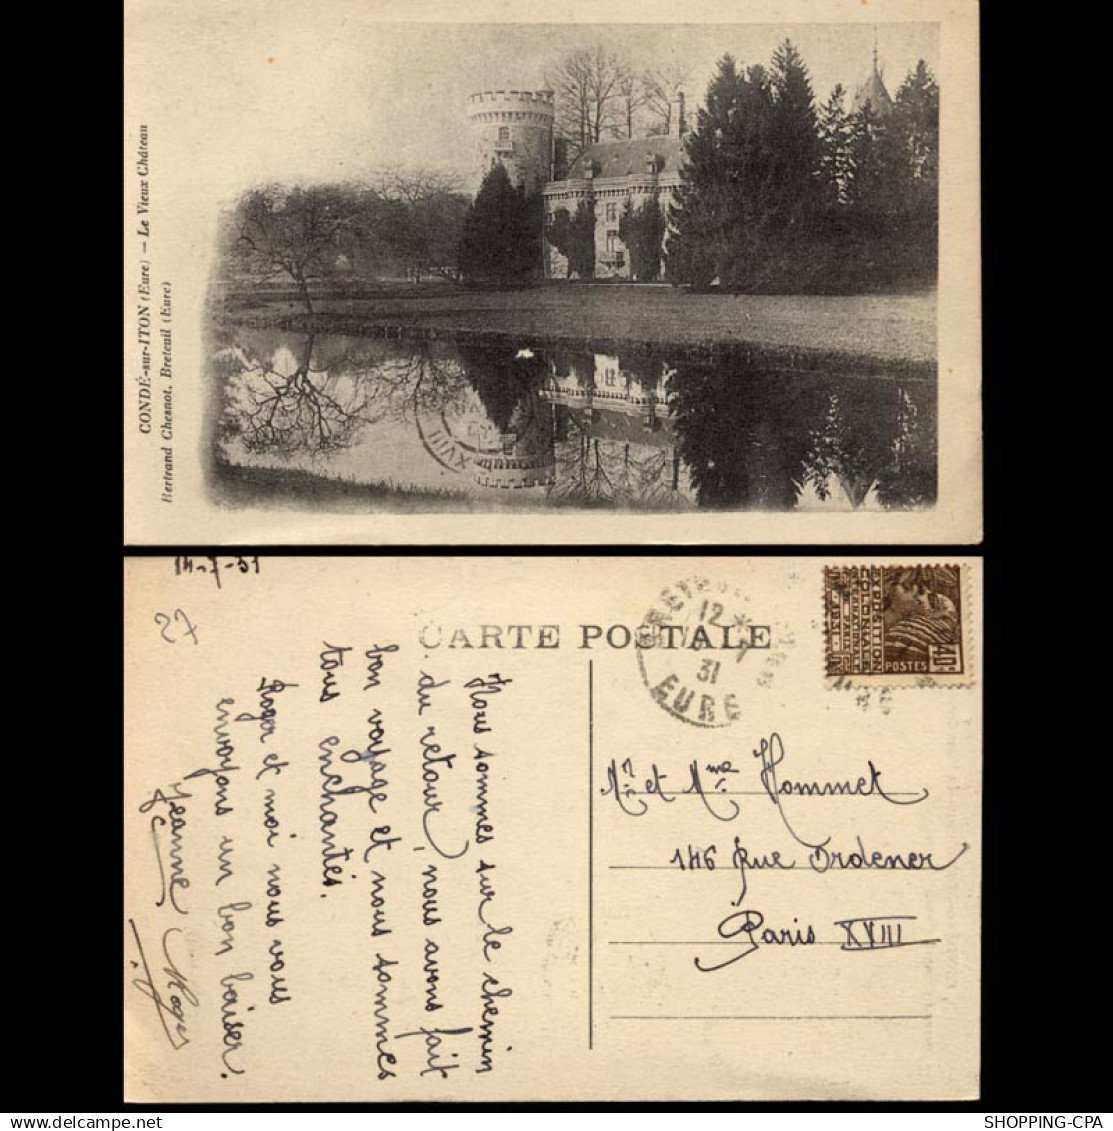 CONDÉ-sur-ITON (Eure) — Le Vieux Château
Bertrand Chesnot, Breteuil (Eure)
XVIII
14-7-31
27
CARTE POSTALE
12
7
31
EURE
EXPOSITION
COLONIALE
INTERNATIONALE
PARIS 1931
POSTES
40c
Nous sommes sur le chemin
du retour, nous avons fait
bon voyage et nous sommes
tous enchantés.
Roger et moi nous vous
envoyons un bon baiser.
Jeanne Roger
Mr et Mme Hommet
146 Rue Ordener
Paris XVIII
SHOPPING-CPA